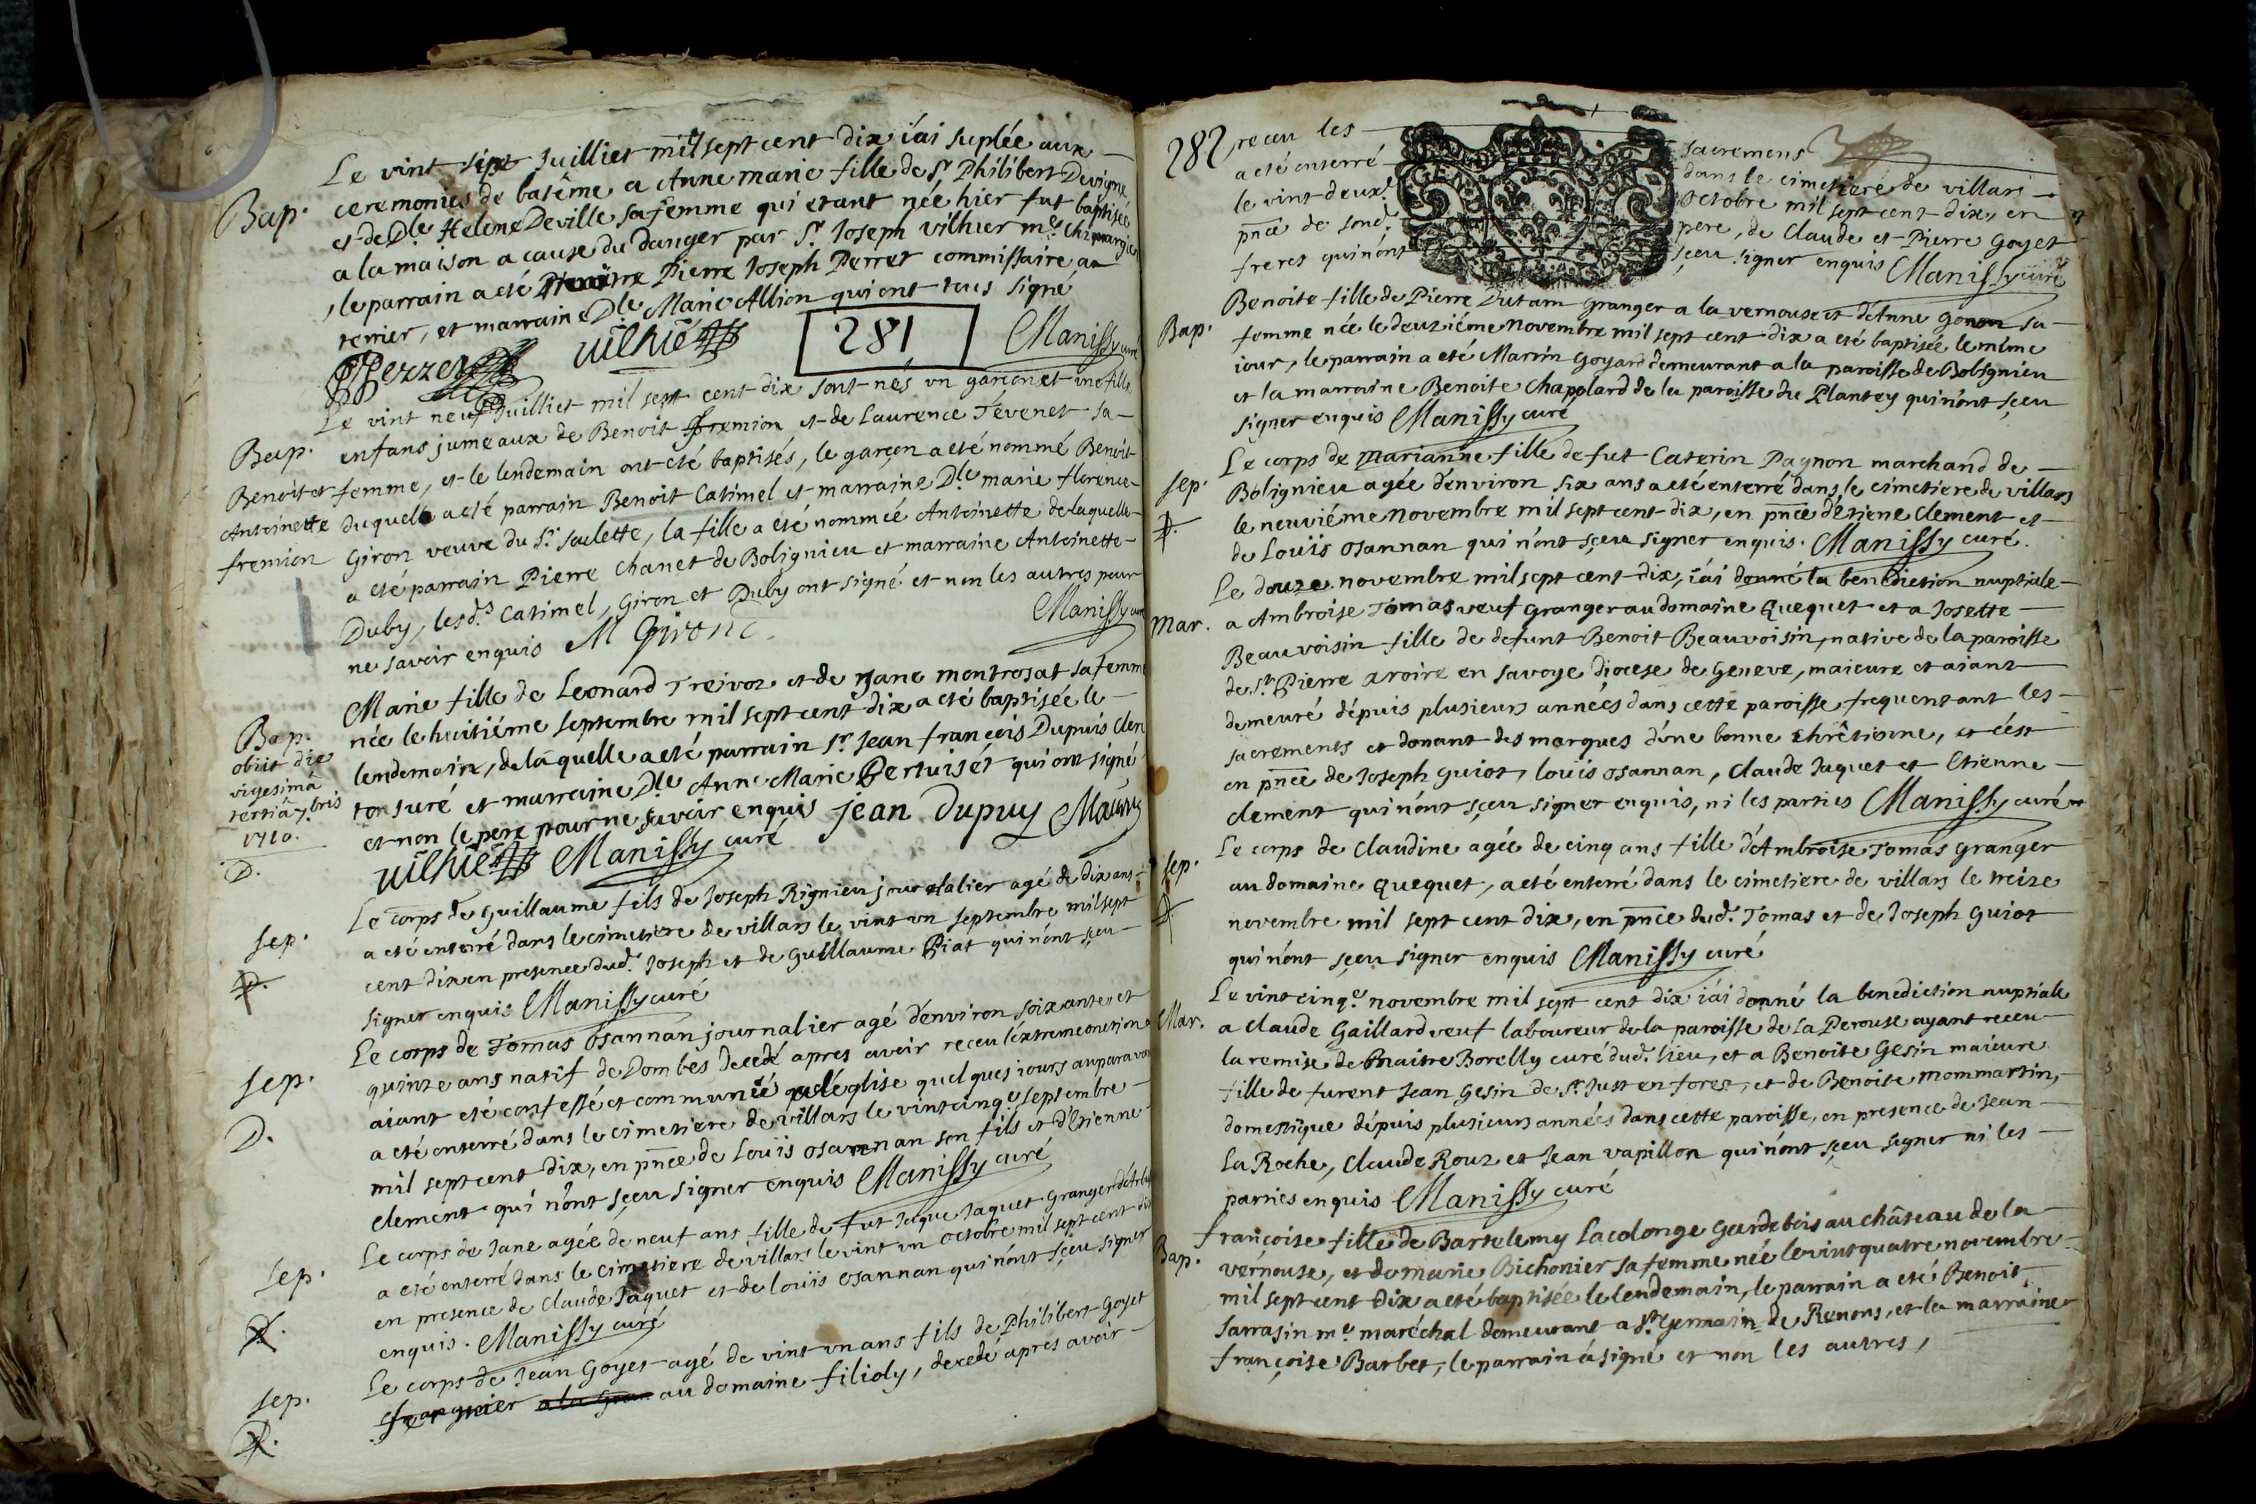 Le vint sept Juilliet mil sept cent dix i'ai suplée aux
Bap. ceremonies de batême a Anne marie fille de Sr. Philibert Devigne
et de Dle. Helene Deville sa femme qui etant née hier fut baptisée
a la maison a cause du danger par Sr. Joseph vilhier me. chirurgien
, le parrain a eté Pierre Joseph Perret commissaire a
terrier, et marraine Dle. Marie Allion qui ont tous signé
JPerret vilhié 281 Manissy curé
Le vint neuf Juilliet mil sept cent dix sont nés un garçon et une fille
Bap. enfans jumeaux de Benoit fremion et de Laurence Tévenet sa
Benoit et femme, et le lendemain ont eté baptisés, le garçon a eté nommé Benoit
Antoinette duquel a eté parrain Benoit Catimel et marraine Dle. marie florence
fremion Giron veuve du Sr. saclette, la fille a eté nommée Antoinette de laquelle
a eté parrain Pierre Chanet de Bolignieu et marraine Antoinette
Duby, lesds. Catimel, Giron et Duby ont signé et non les autres pour
ne savoir enquis M Giron Manissy curé
Marie fille de Leonard Treivoz et de Jane montrosat sa femme
Bap. née le huitiéme septembre mil sept cent dix a eté baptisée le
obiit die lendemain, de laquelle a eté parrain Sr. Jean françois Dupuis clerc
vigesimâ tonsuré et marraine Dle. Anne Marie Pertuiset qui ont signé
tertiâ 7bris et non le pere pour ne savoir enquis jean dupuy
1710. vilhié Manissy curé
D.
Le corps de Guillaume fils de Joseph Rignieu journalier agé de dix ans
Sep. a eté enterré dans le cimetiere de villars le vint un septembre mil sept
D. cent dix en presence dud. Joseph et de Guillaume Piat qui n'ont sçeu
signer enquis Manissy curé
Le corps de Tomas Osannan journalier agé d'environ soixante et
Sep. quinze ans natif de Dombes decedé apres avoir receu l'extremeonction
aiant eté confessé et communié a l'église quelques iours auparavant
D. a eté enterré dans le cimetiere de villars le vint cinqe. septembre
mil sept cent dix, en pnce de Loüis osannan son fils et d'Etienne
clement qui n'ont sçeu signer enquis Manissy curé
Le corps de Jane agée de neuf ans fille de fut Jaque Jaquet Granger
Sep. a eté enterré dans le cimetiere de villars le vint un octobre mil sept cent dix
en presence de Claude Jaquet et de loüis osannan qui n'ont sçeu signer
D. enquis. Manissy curé
Le corps de Jean Goyet agé de vint un ans fils de Philibert Goyet
Sep. au domaine filioly, decedé apres avoir
D.
282 receu les sacremens
a eté enterré dans le cimetiere de villars
le vint deuxe. octobre mil sept cent dix, en
pnce de sond. pere, de Claude et Pierre Goyet
freres qui n'ont sçeu signer enquis Manissy curé
Benoite fille de Pierre Dutam Granger a la vernouse et d'Anne Gonon sa
Bap. femme née le deuziéme novembre mil sept cent dix a eté baptisée le même
iour, le parrain a eté Martin Goyard demeurant a la paroisse de Bolignieu
et la marraine Benoite Chapolard de la paroisse du Plantey qui n'ont sçeu
signer enquis Manissy curé
Le corps de marianne fille de fut Caterin Pagnon marchand de
Sep. Bolignieu agée d'environ six ans a eté enterré dans le cimetiere de villars
D. le neuviéme novembre mil sept cent dix, en pnce d'Etiene Clement et
de Loüis osannan qui n'ont sçeu signer enquis. Manissy curé.
Le douze novembre mil sept cent dix, i'ai donné la benediction nuptiale
Mar. a Ambroise Tomas veuf granger au domaine Quequet et a Josette
Beauvoisin fille de defunt Benoit Beauvoisin, native de la paroisse
de St. Pierre aroire en savoye diocese de Geneve, maieure et aiant
demeuré dépuis plusieurs années dans cette paroisse frequentant les
sacrements et donant des marques d'une bonne chrêtienne, et c'est
en pnce de Joseph guiot, loüis osannan, Claude Jaquet et Etienne
clement qui n'ont sçeu signer enquis, ni les parties Manissy curé
Le corps de Claudine agée de cinq ans fille d'Ambroise Tomas granger
Sep. au domaine Quequet, a eté enterré dans le cimetiere de villars le treize
D. novembre mil sept cent dix, en pnce dud. Tomas et de Joseph Guiot
qui n'ont sçeu signer enquis Manissy curé
Le vint cinqe. novembre mil sept cent dix i'ai donné la benediction nuptiale
Mar. a claude Gaillard veuf laboureur de la paroisse de La Perouse ayant receu
la remise de maitre Borelly curé dud. lieu, et a Benoite Gesin maieure
fille de furent Jean Gesin de St. Just en forez, et de Benoite mommartin,
domestique dépuis plusieurs années dans cette paroisse, en presence de Jean
La Roche, Claude Rouz et Jean vapillon qui n'ont sçeu signer ni les
parties enquis Manissy curé
françoise fille de Bartelemy Lacolonge Garde bois au château de la
Bap. vernouse, et de marie Bichonier sa femme née le vint quatre novembre
mil sept cent dix a eté baptisée le lendemain, le parrain a eté Benoit
sarrasin me. maréchal demeurant a St. Germain de Renons, et la marraine
françoise Barbet, le parrain a signé et non les autres,